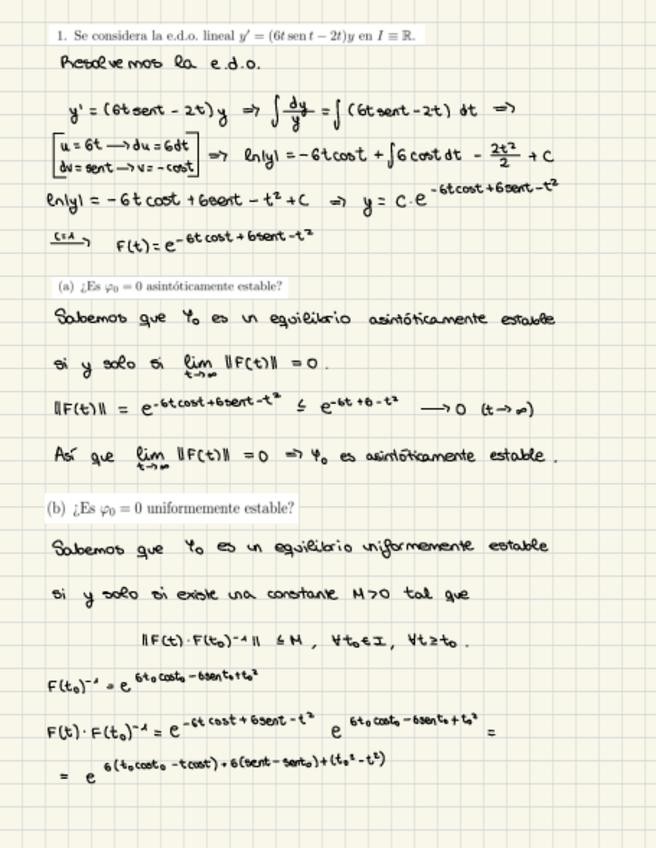 1. Se considera la e.d.o. lineal y' = (6t sen t − 2t)y en I ≡ ℝ.
Resolvemos la e.d.o.
y' = (6t sent − 2t) y ⇒ ∫ dy/y = ∫ (6t sent − 2t) dt ⇒
[u = 6t → du = 6dt
dv = sent → v = −cost] ⇒ ln|y| = −6t cost + ∫6 cost dt − 2t²/2 + C
ln|y| = −6t cost + 6sent − t² + C ⇒ y = C·e^(−6t cost + 6sent − t²)
C=1→ F(t) = e^(−6t cost + 6sent − t²)
(a) ¿Es φ₀ = 0 asintóticamente estable?
Sabemos que φ₀ es un equilibrio asintóticamente estable
si y solo si lim t→∞ ||F(t)|| = 0.
||F(t)|| = e^(−6t cost + 6sent − t²) ≤ e^(−6t + 6 − t²) → 0 (t→∞)
Así que lim t→∞ ||F(t)|| = 0 ⇒ φ₀ es asintóticamente estable.
(b) ¿Es φ₀ = 0 uniformemente estable?
Sabemos que φ₀ es un equilibrio uniformemente estable
si y solo si existe una constante M>0 tal que
||F(t)·F(t₀)⁻¹|| ≤ M, ∀t₀∈I, ∀t≥t₀.
F(t₀)⁻¹ = e^(6t₀ cost₀ − 6sent₀ + t₀²)
F(t)·F(t₀)⁻¹ = e^(−6t cost + 6sent − t²) e^(6t₀ cost₀ − 6sent₀ + t₀²) =
= e^(6(t₀cost₀ − tcost) + 6(sent − sent₀) + (t₀² − t²))